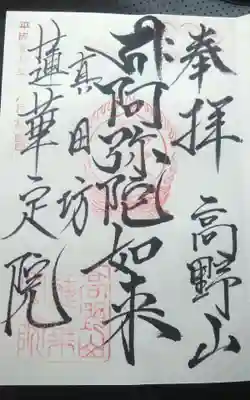 奉拝
高野山
阿弥陀如来
真田坊
蓮華定院
平成